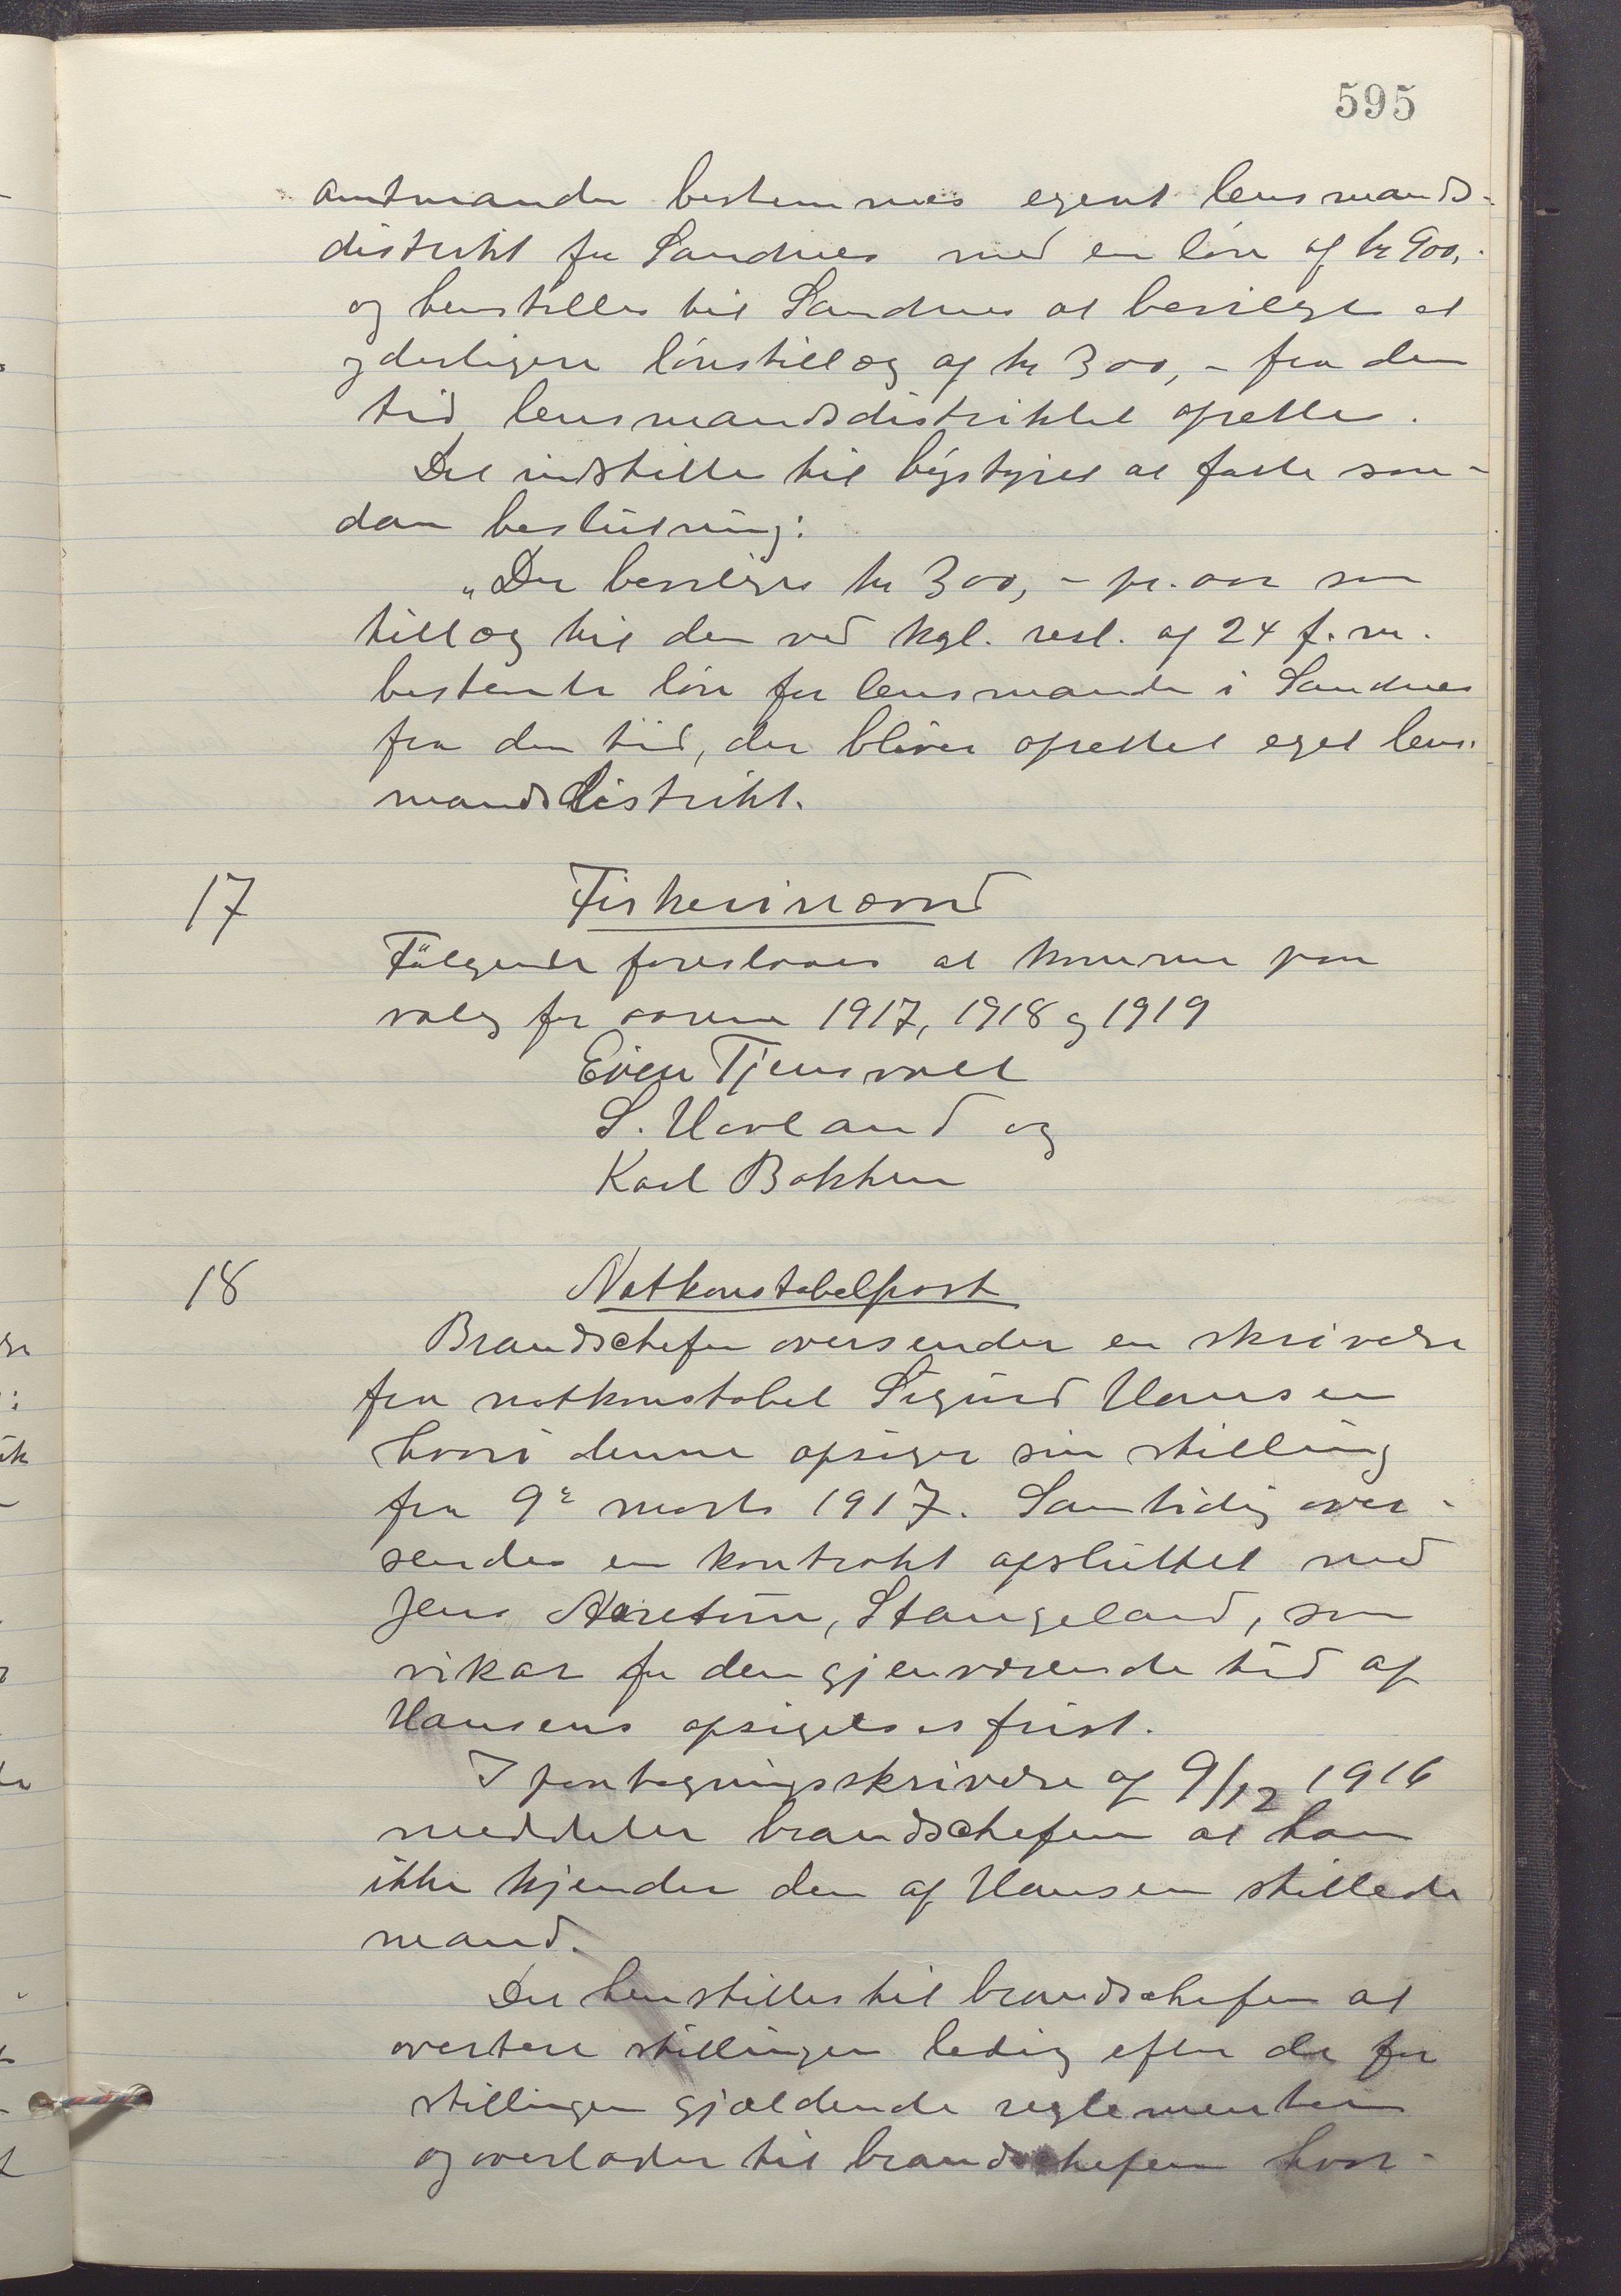 595
amtmanden bestemmes egent lensmands-
distrikt for Sandnes med en løn af kr 900,-
og henstilles til Sandnes at bevilge et
yderligere lønstillæg af kr 300,- fra den
tid lensmandsdistriktet oprettes.
Det indstilles til bystyret at fatte saa-
dan beslutning:
"Der bevilges kr 300,- pr. aar som
tillæg til den ved kgl. resl. af 24 f. m.
bestemte løn for lensmanden i Sandnes
fra den tid, der bliver oprettet eget lens-
mandsdistrikt.
17 Fiskerinævnd
Følgende foreslaaes at komme paa
valg for aarene 1917, 1918 og 1919
Even Tjensvold
S. Hovland og
Karl Bakken
18 Natkonstabelpost
Brandschefen oversender en skrivelse
fra natkonstabel Sigurd Hansen
hvori denne opsiger sin stilling
fra 9de marts 1917. Samtidig over-
sendes en kontrakt afsluttet med
Jens Aaretun, Stangeland, som
vikar for den gjenværende tid af
Hansens opsigelsesfrist.
I paategningsskrivelse af 9/12 1916
meddeler brandschefen at han
ikke kjender den af Hansen stillede
mand.
Det henstilles til brandschefen at
avertere stillingen ledig efter de for
stillingen gjældende reglementer
og overlader til brandschefen hvor-